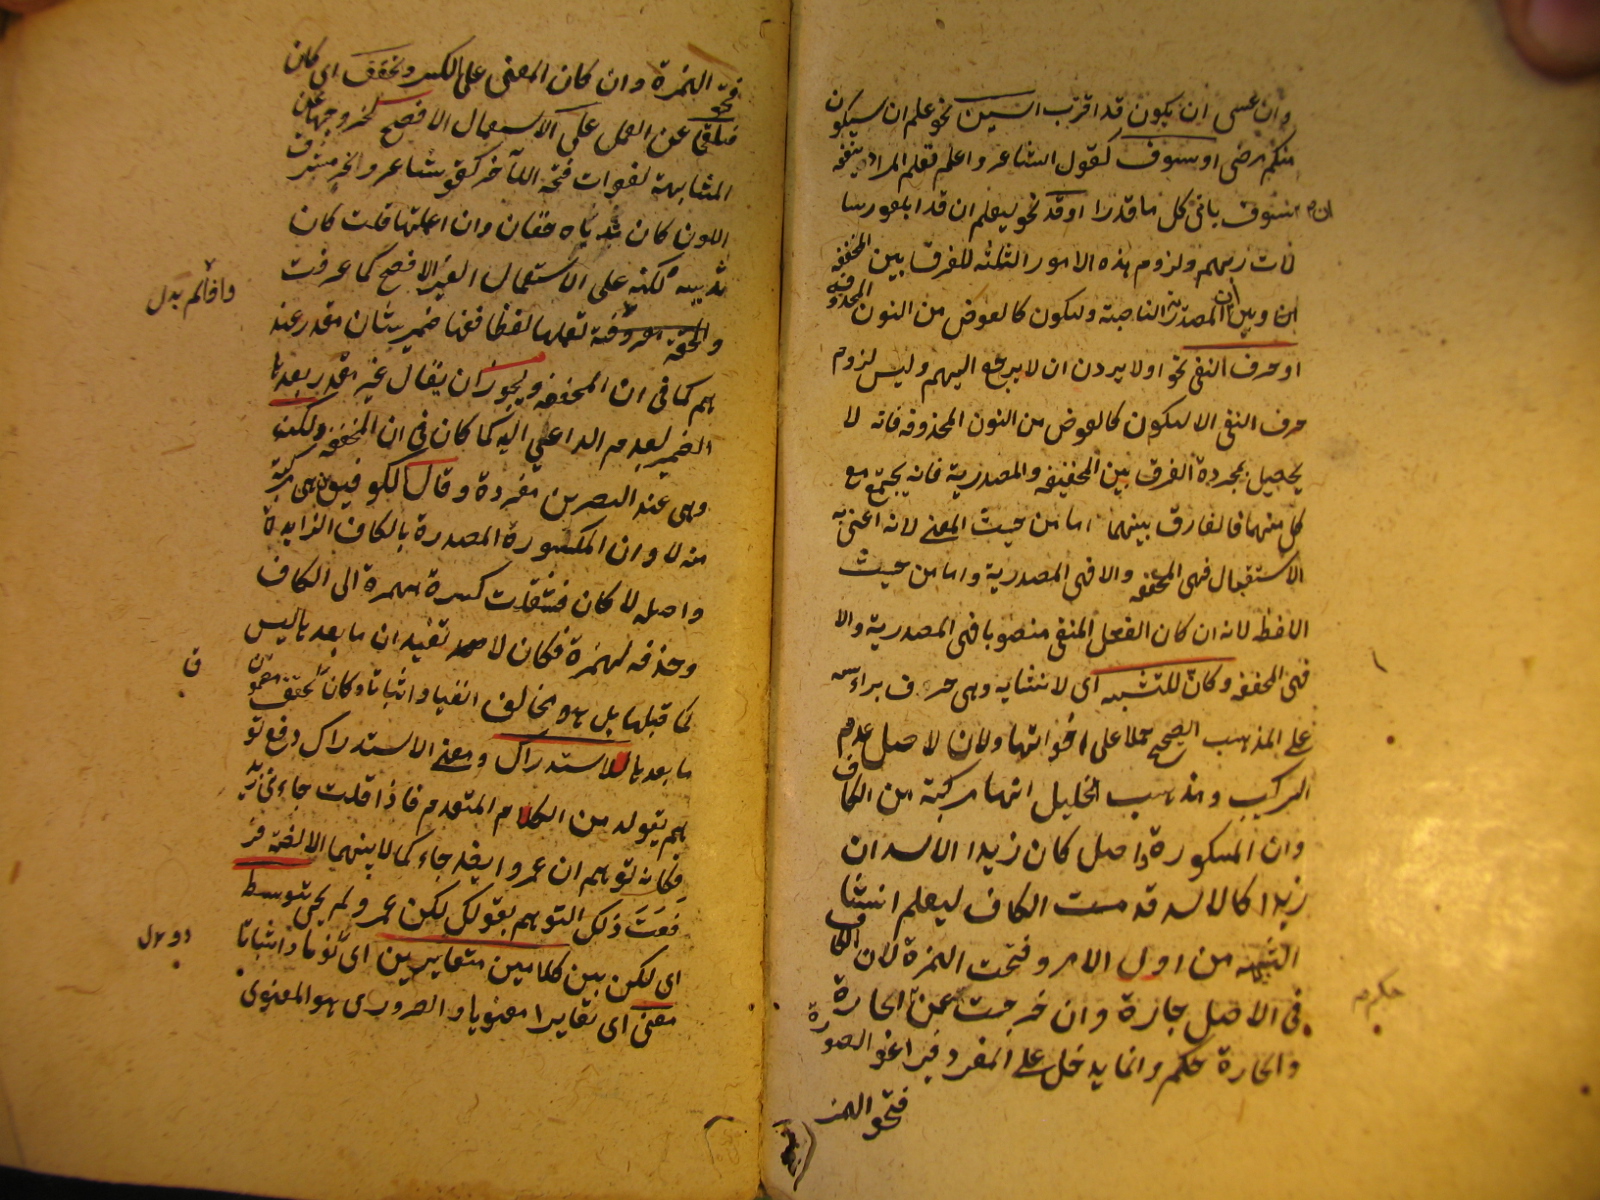 وان عسى ان يكون قد اقترب السين نحو علم ان سيكون
منكم مرضى او سوف كقول الشاعر واعلم فعلم المراد ينفعه
ان سوف ياتى كل ما قدرا او قد نحو ليعلم ان قد ابلغوا رسا
لات ربهم ولزوم هذه الامور الثلثه للفرق بين المخففه
وبين ان المصدرية الناصبة وليكون كالعوض من النون المحذوفه
او حرف النفى نحو اولا يردن ان لا يرجع اليهم وليس لزوم
حرف النفى الا ليكون كالعوض من النون المحذوفه فانه لا
يحصيل بمجرده الفرق بين المخفيفه والمصدرية فانه يجتمع مع
كل منهما فالفارق بينهما اما من حيث المعنى لانه اعنى به
الاستقبال فهى المخففه والا فهى المصدرية واما من حيث
اللافظ لانه ان كان الفعل المنفى منصوبا فهى المصدرية والا
فهى المخففه وكان للتشبيه اى لانشايه وهى حرف براءسه
على المذهب الصحيح حملا على اخواتها ولان لاصل عدم
التركيب ومذهب الخليل انها مركبة من الكاف
وان المسكورة واصل كان زيدا الاسد ان
زيدا كالاسد قدمت الكاف ليعلم انشا
التشبيه من اول الامر وفتحت الهمزة لان الكاف
فى الاصل جازة وان خرجت عن الجارة
والجارة حكم وانما يدخل على المفرد فراعوا الصورة
فتحوا الهمز
حكم
فتحو الهمزة وان كان المعنى على الكسر وتخفف اى كان
فتلغى عن العمل على الاستعمال الافصح لخروجها عن
المشابهة لفوات فتحة اللآخر كقو شاعر والخر مشرق
اللون كان ثدياه حقان وان اعلمتها قلت كان
ثدييه لكنه على الاستعمال الغير الافصح كما عرفت
واذا لم
تعملها لفظا ففيها ضمير شان مقدر عند
هم كما فى ان المخففه ويجوز ان يقال غير مقدر بعدها
الضمير لعدم الداعى اليه كما كان فى ان المخففه ولكن
وهى عند البصرين مفردة وقال الكوفيون هى مركبة
من لا وان المكسورة المصدرة بالكاف الزايدة
واصله لا كان فنقلت كسرة همزة الى الكاف
وحذفه الهمزة فكان لا تفيد ان ما بعدها ليس
ف
كما قبلها بل هو يخالف انفيا واثباتا وكان تحقق مضمون
ما بعدها للاستدراك ومعنى الاستدراك دفع تو
هم يتولد من الكلام المتقدم فاذا قلت جاءنى زيد
فكانه توهم ان عمروا ايضا جاء كما لا بينهما الالفة فر
فعت ذلك التوهم بقولك لكن عمرو لم يجى توسط
اى لكن بين كلامين متغايرين اى نفيا واثباتا
معنى اى تغايرا معنويا والضرورى هو المعنوى